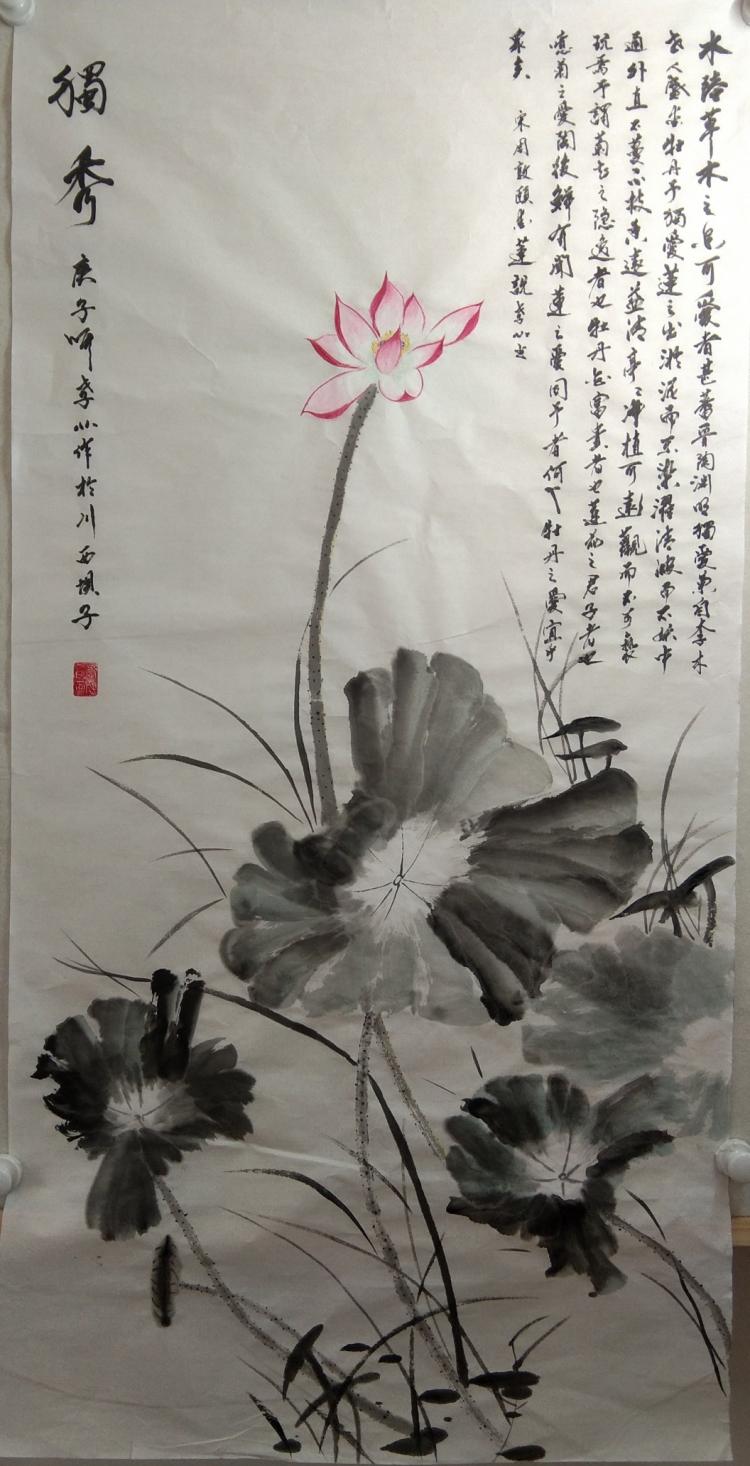 水陸草木之花可愛者甚蕃晉陶渊明獨愛菊自李来
世人盛愛牡丹予獨愛蓮之出淤泥而不染濯清漣而不妖中
通外直不蔓不枝香遠益清亭亭净植可遠觀而不可褻
玩焉予謂菊花之隐逸者也牡丹花富貴者也蓮花之君子者也
噫菊之愛陶後鮮有聞蓮之愛同予者何人牡丹之愛宜乎
衆矣 宋周敦頤愛蓮説孝心书
獨秀
庚子孝心作於川西壩子